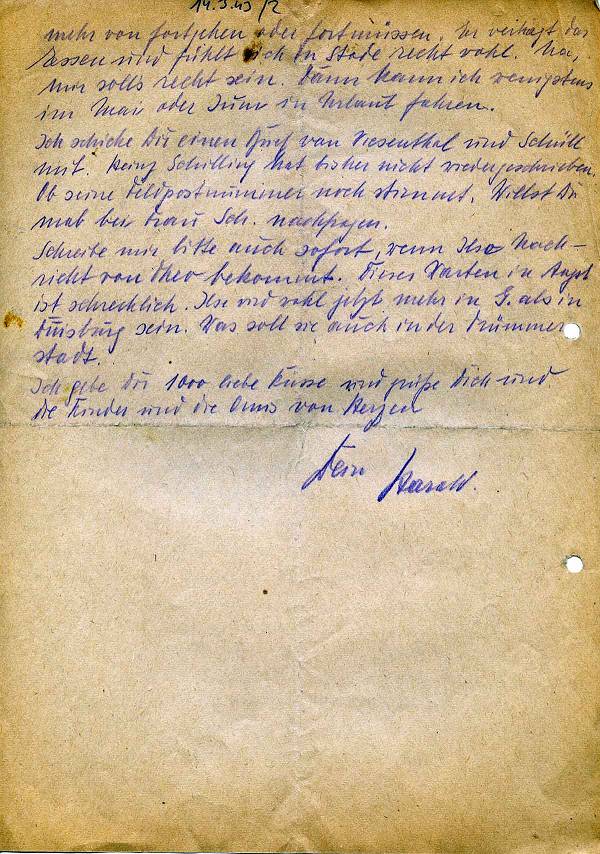 14.3.43/2
mehr von fortgehen oder fortmüssen. Er verträgt das
Essen und fühlt sich in Stade recht wohl. Na,
mir solls recht sein. Dann kann ich wenigstens
im Mai oder Juni in Urlaub fahren.
Ich schicke Dir einen Brief von Viesenthal und Schüll
mit. Heinz Schilling hat bisher nicht wiedergeschrieben.
Ob seine Feldpostnummer noch stimmt. Willst Du
mal bei Frau Sch. nachfragen.
Schreibe mir bitte auch sofort, wenn Ilse Nach-
richt von Theo bekommt. Dieses Warten in Angst
ist schrecklich. Ilse wird wohl jetzt mehr in G. als in
Duisburg sein. Was soll sie auch in der Trümmer
stadt.
Ich gebe Dir 1000 liebe Küsse und grüße Dich und
die Kinder und die Omis von Herzen
Dein Harald.